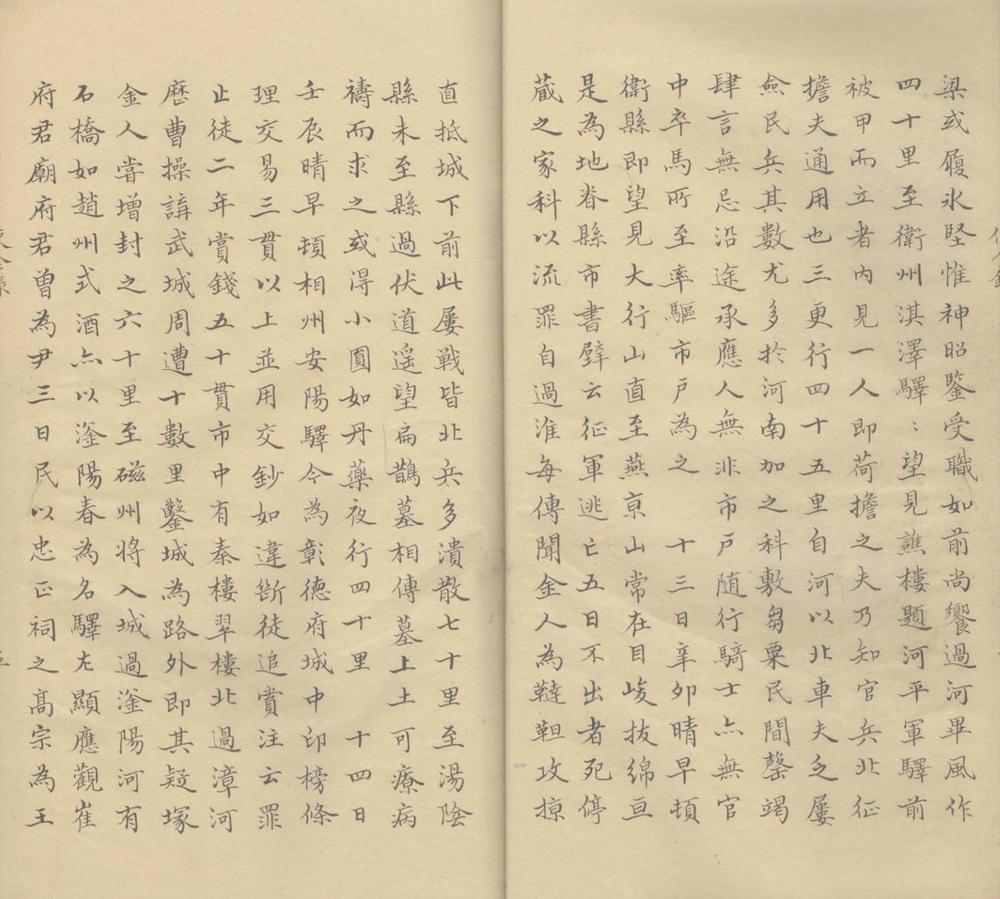 梁或履氷堅惟神昭鑒受職如前尚饗過河畢風作
四十里至衛州淇澤驛〻望見譙樓題河平軍驛前
被甲而立者內見一人即荷擔之夫乃知官兵北征
擔夫通用也三更行四十五里自河以北車夫之屢
僉民兵其數尤多於河南加之科敷芻粟民間罄竭
肆言無忌沿途承應人無非市戶随行騎士亦無官
中卒馬所至率驅市戶為之　十三日辛卯晴早頓
衛縣即望見大行山直至燕京山常在目峻拔綿亘
是為地脊縣市書壁云征軍逃亡五日不出者死停
蔵之家科以流罪自過淮每傳聞金人為韃靼攻掠
直抵城下前此屢戰皆北兵多潰散七十里至湯陰
縣未至縣過伏道遥望扁鵲墓相傳墓上土可療病
禱而求之或得小圓如丹藥夜行四十里　十四日
壬辰晴早頓相州安陽驛今為彰德府城中印榜條
理交易三貫以上並用交鈔如違斷徒追賞注云罪
止徒二年賞錢五十貫市中有秦樓翠樓北過漳河
歷曹操講武城周遭十數里鑿城為路外即其疑塚
金人嘗增封之六十里至磁州将入城過滏陽河有
石橋如趙州式酒亦以滏陽春為名驛左顯應觀崔
府君廟府君曽為尹三日民以忠正祠之髙宗為王